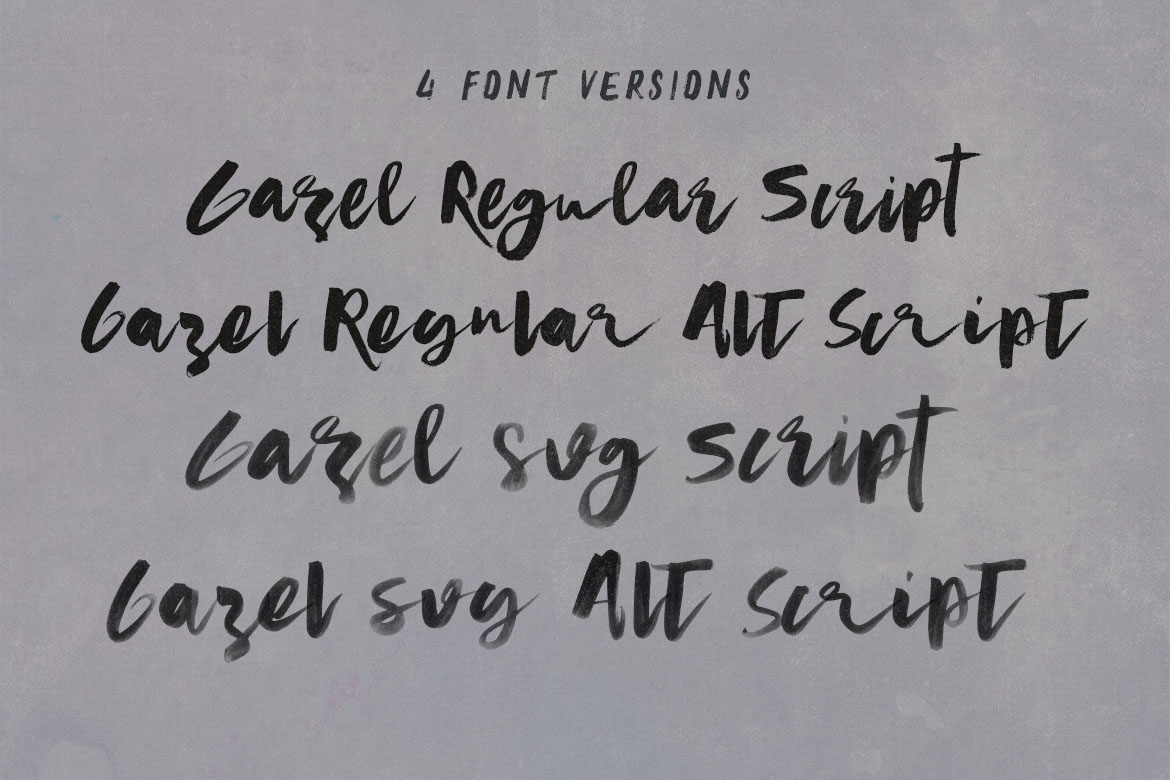 4 FONT VERSIONS
Gazel Regular Script
Gazel Regular Alt Script
Gazel svg Script
Gazel svg Alt Script